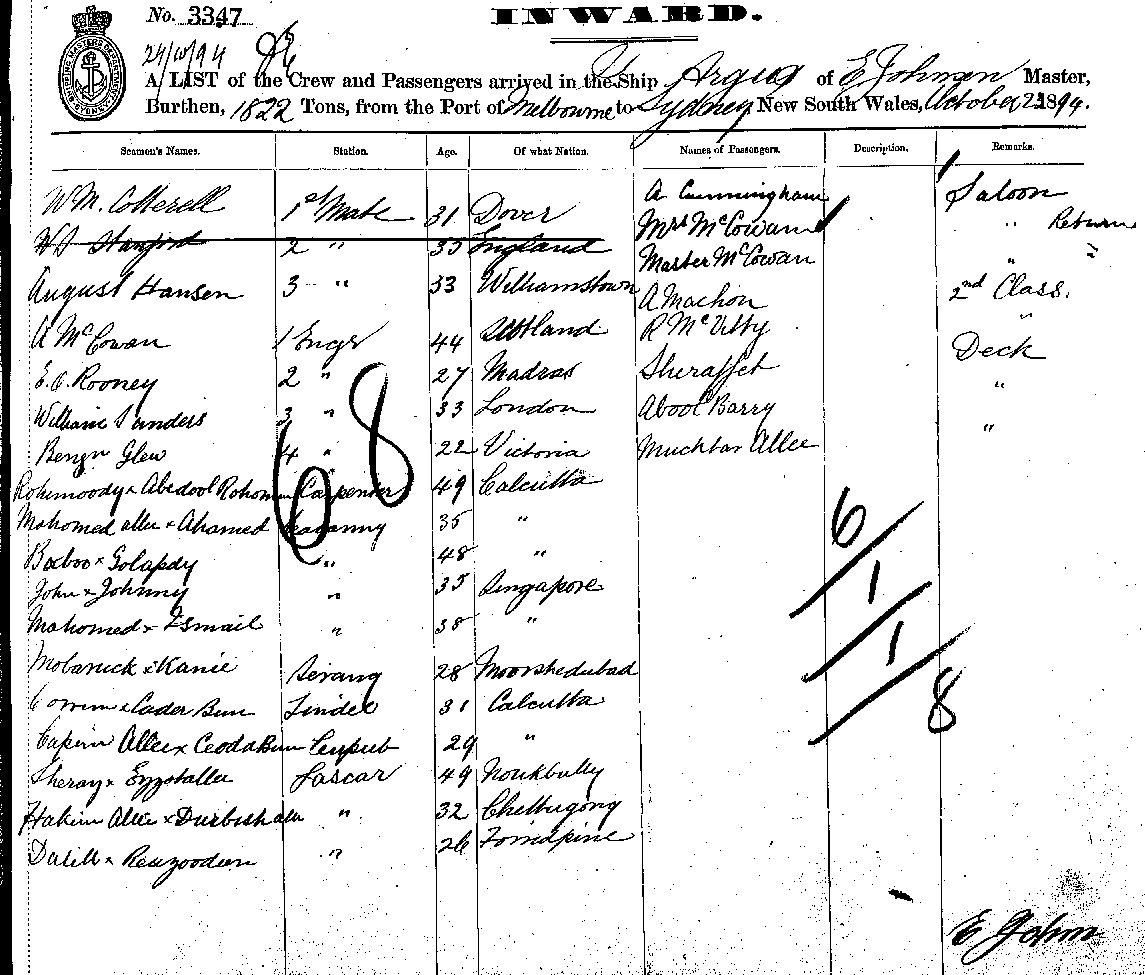 No. 3347
INWARD.
24/10/94
A LIST of the Crew and Passengers arrived in the Ship Argus of E Johnson Master,
Burthen, 1822 Tons, from the Port of Melbourne to Sydney New South Wales, October 1894.
Seamen's Names. Station. Age. Of what Nation. Names of Passengers. Description. Remarks.
WM. Cotterell 1st Mate 31 Dover A Cunningham Saloon
Stanford 2 " 35 England Mrs McCowan " Return
Master McCowan " "
August Hansen 3 " 33 Williamstown A Machon 2nd Class.
A McCowan 1 Engr 44 Scotland R McVitty "
E.C. Rooney 2 " 27 Madras Sheraffet Deck
William Sanders 3 " 33 London Abool Barry "
Benjn Glew 4 " 22 Victoria Muchtar Allee "
68
Rohimoody x Abedool Rohoman Carpenter 49 Calcutta
Mahomed allee x Ahamed 35 "
Baboo x Golapdy " 48 "
John x Johnny " 35 Singapore
Mahomed x Ismail " 38 "
Mobaruck x Kanie Serang 28 Moorshedubad
x Cader Bux Tindel 31 Calcutta
Allee x 29 "
Sheraz x Ezzotalla Lascar 49
Hakim Allee x " 32
Dalill x Reazoodeen " 26
6
1
1
8
E John